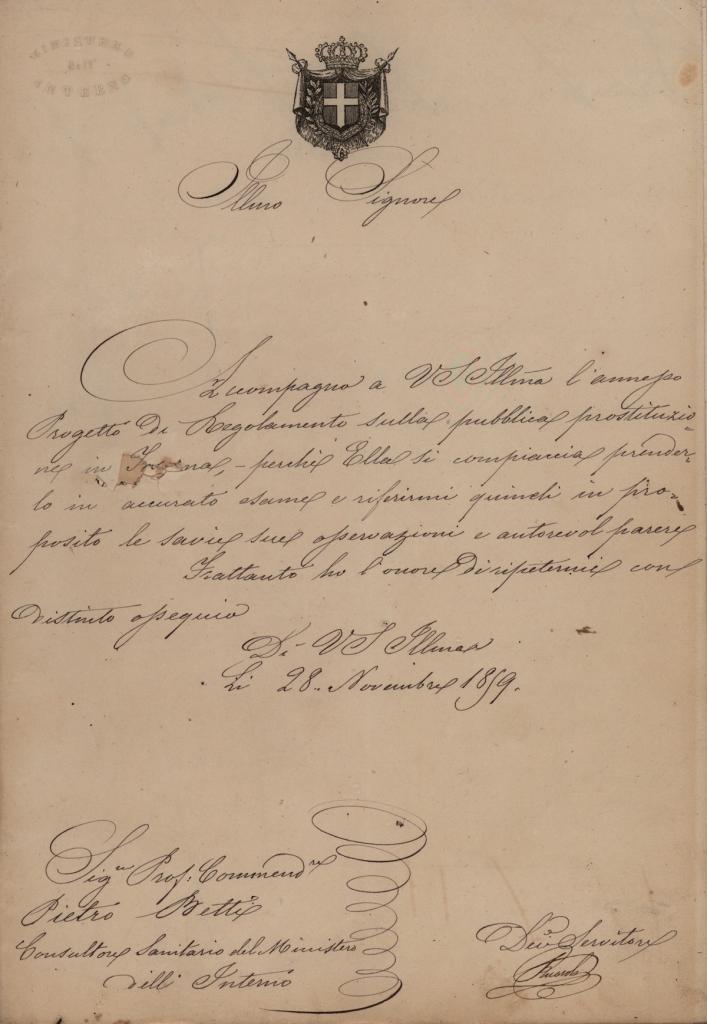 MINISTERO
DELL'
INTERNO
Illmo Signore
Accompagno a VS Illma l'annesso
Progetto di Regolamento sulla pubblica prostituzio-
ne in Toscana, - perchè Ella si compiaccia prender-
lo in accurato esame e riferirmi quindi in pro-
posito le savie sue osservazioni e autorevol parere
Frattanto ho l'onore di ripetermi con
distinto ossequio
Di VS Illma
Li 28. Novembre 1859.
Sig.re Prof: Commend.re
Pietro Betti
Consultore Sanitario del Ministero
dell' Interno
Dev.o Servitore